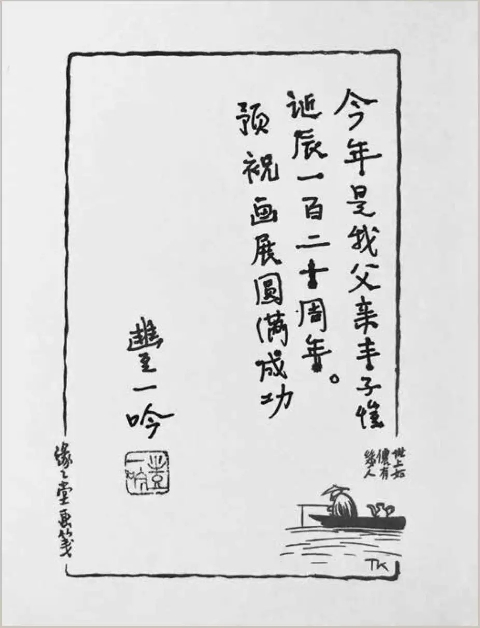 今年是我父亲丰子恺
诞辰一百二十周年。
预祝画展圆满成功
豐一吟
豐一吟
世上如
儂有
幾人
TK
緣之堂画箋